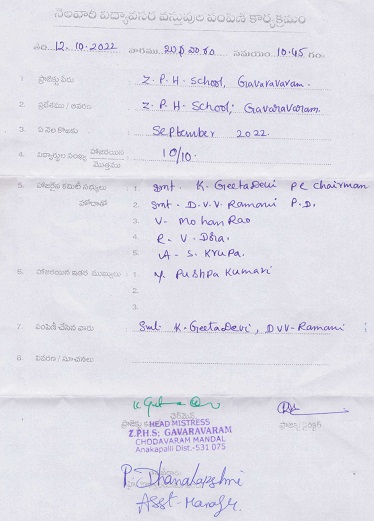 నెలవారి విద్యావసర వస్తువుల పంపిణి కార్యక్రమం
తేది. 12.10.2022 వారము బుధవారం సమయం 10.45 గం.
1. ప్రాజెక్టు పేరు : Z.P.H. School, Gavaravaram.
2. ప్రదేశము / ఆవరణ : Z.P.H. School, Gavaravaram.
3. ఏ నెల కొరకు : September 2022.
4. విద్యార్థుల సంఖ్య హాజరయిన / మొత్తము : 10/10.
5. హాజరైన కమిటీ సభ్యులు హోదాతో : 1. Smt. K. Geeta Devi PC Chairman
2. Smt. D.V.V. Ramani P.D.
3. V. Mohan Rao
4. R. V. Dora.
5. A. S. Krupa.
6. హాజరయిన ఇతర ముఖ్యులు : 1. Y. Pushpa Kumari
2.
3.
7. పంపిణి చేసిన వారు : Smt. K. Geeta Devi, D.V.V. Ramani
8. వివరణ / సూచనలు :
ఛైర్మెన్
HEAD MISTRESS
Z.P.H.S; GAVARAVARAM
CHODAVARAM MANDAL
Anakapalli Dist.-531 075
P. Dhanalakshmi
Asst-Manager.